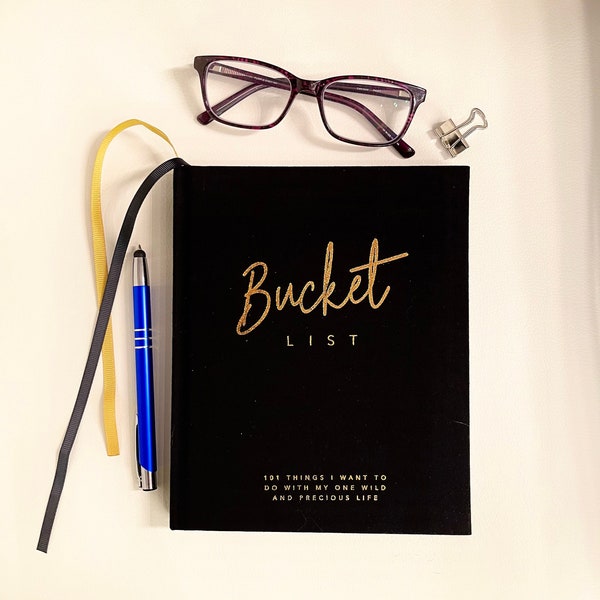 Bucket
LIST
101 THINGS I WANT TO
DO WITH MY ONE WILD
AND PRECIOUS LIFE